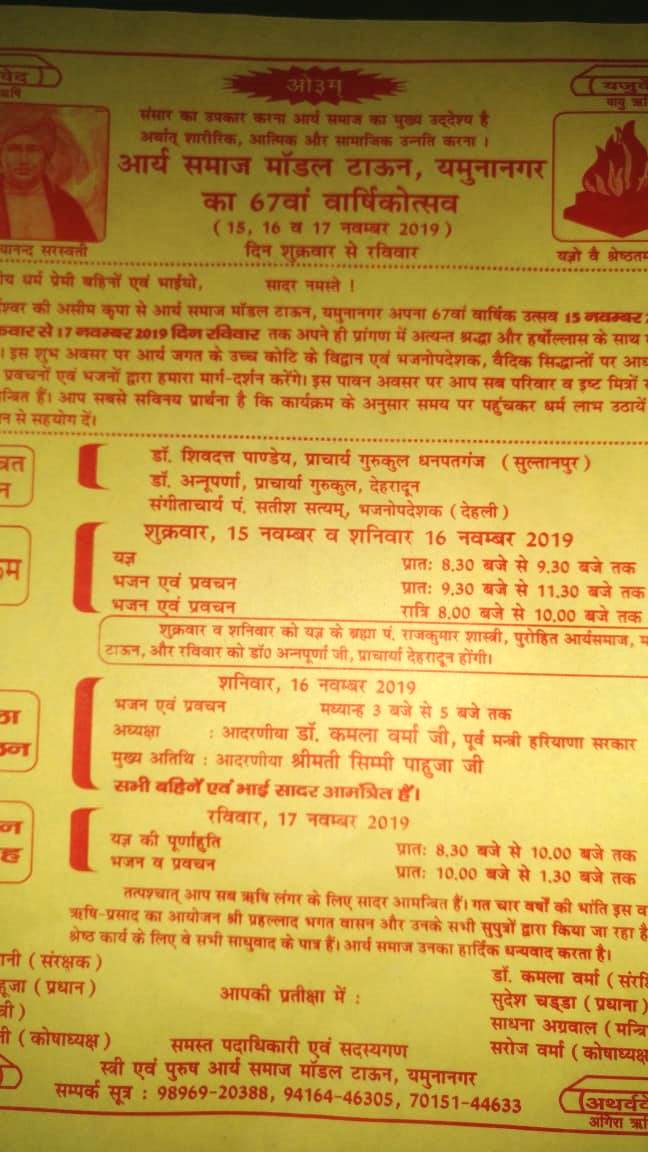 वेद
ओ३म्
यजुर्वे
ऋषि
वायु ऋ
संसार का उपकार करना आर्य समाज का मुख्य उद्देश्य है
अर्थात् शारीरिक, आत्मिक और सामाजिक उन्नति करना ।
आर्य समाज मॉडल टाऊन, यमुनानगर
का 67वां वार्षिकोत्सव
( 15, 16 व 17 नवम्बर 2019 )
दिन शुक्रवार से रविवार
यानन्द सरस्वती
यज्ञो वै श्रेष्ठतम
ीय धर्म प्रेमी बहिनों एवं भाईयो, सादर नमस्ते !
श्वर की असीम कृपा से आर्य समाज मॉडल टाऊन, यमुनानगर अपना 67वां वार्षिक उत्सव 15 नवम्बर
क्रवार से 17 नवम्बर 2019 दिन रविवार तक अपने ही प्रांगण में अत्यन्त श्रद्धा और हर्षोल्लास के साथ
। इस शुभ अवसर पर आर्य जगत के उच्च कोटि के विद्वान एवं भजनोपदेशक, वैदिक सिद्धान्तों पर आध
प्रवचनों एवं भजनों द्वारा हमारा मार्ग-दर्शन करेंगे। इस पावन अवसर पर आप सब परिवार व इष्ट मित्रों स
न्त्रित हैं। आप सबसे सविनय प्रार्थना है कि कार्यक्रम के अनुसार समय पर पहुंचकर धर्म लाभ उठायें
न से सहयोग दें।
त्रित
न
डॉ. शिवदत्त पाण्डेय, प्राचार्य गुरुकुल धनपतगंज ( सुल्तानपुर )
डॉ. अन्नूपर्णा, प्राचार्या गुरुकुल, देहरादून
संगीताचार्य पं. सतीश सत्यम्, भजनोपदेशक ( देहली )
क्रम
शुक्रवार, 15 नवम्बर व शनिवार 16 नवम्बर 2019
यज्ञ प्रातः 8.30 बजे से 9.30 बजे तक
भजन एवं प्रवचन प्रातः 9.30 बजे से 11.30 बजे तक
भजन एवं प्रवचन रात्रि 8.00 बजे से 10.00 बजे तक
शुक्रवार व शनिवार को यज्ञ के ब्रह्मा पं. राजकुमार शास्त्री, पुरोहित आर्यसमाज, म
टाऊन, और रविवार को डॉ0 अन्नपूर्णा जी, प्राचार्या देहरादून होंगी।
शनिवार, 16 नवम्बर 2019
भजन एवं प्रवचन मध्यान्ह 3 बजे से 5 बजे तक
अध्यक्षा : आदरणीया डॉ. कमला वर्मा जी, पूर्व मन्त्री हरियाणा सरकार
मुख्य अतिथि : आदरणीया श्रीमती सिम्मी पाहुजा जी
सभी बहिनें एवं भाई सादर आमंत्रित हैं।
रविवार, 17 नवम्बर 2019
यज्ञ की पूर्णाहुति प्रातः 8.30 बजे से 10.00 बजे तक
भजन व प्रवचन प्रातः 10.00 बजे से 1.30 बजे तक
तत्पश्चात् आप सब ऋषि लंगर के लिए सादर आमन्त्रित हैं। गत चार वर्षों की भांति इस व
ऋषि-प्रसाद का आयोजन श्री प्रहल्लाद भगत वासन और उनके सभी सुपुत्रों द्वारा किया जा रहा है
श्रेष्ठ कार्य के लिए वे सभी साधुवाद के पात्र हैं। आर्य समाज उनका हार्दिक धन्यवाद करता है।
ानी ( संरक्षक )
डॉ. कमला वर्मा ( संरक्षि
हूजा ( प्रधान )
आपकी प्रतीक्षा में :
सुदेश चड्डा ( प्रधाना )
त्री )
साधना अग्रवाल ( मन्त्रि
ती ( कोषाध्यक्ष )
समस्त पदाधिकारी एवं सदस्यगण
सरोज वर्मा ( कोषाध्यक्ष
स्त्री एवं पुरुष आर्य समाज मॉडल टाऊन, यमुनानगर
सम्पर्क सूत्र : 98969-20388, 94164-46305, 70151-44633
अथर्ववे
अंगिरा ऋ